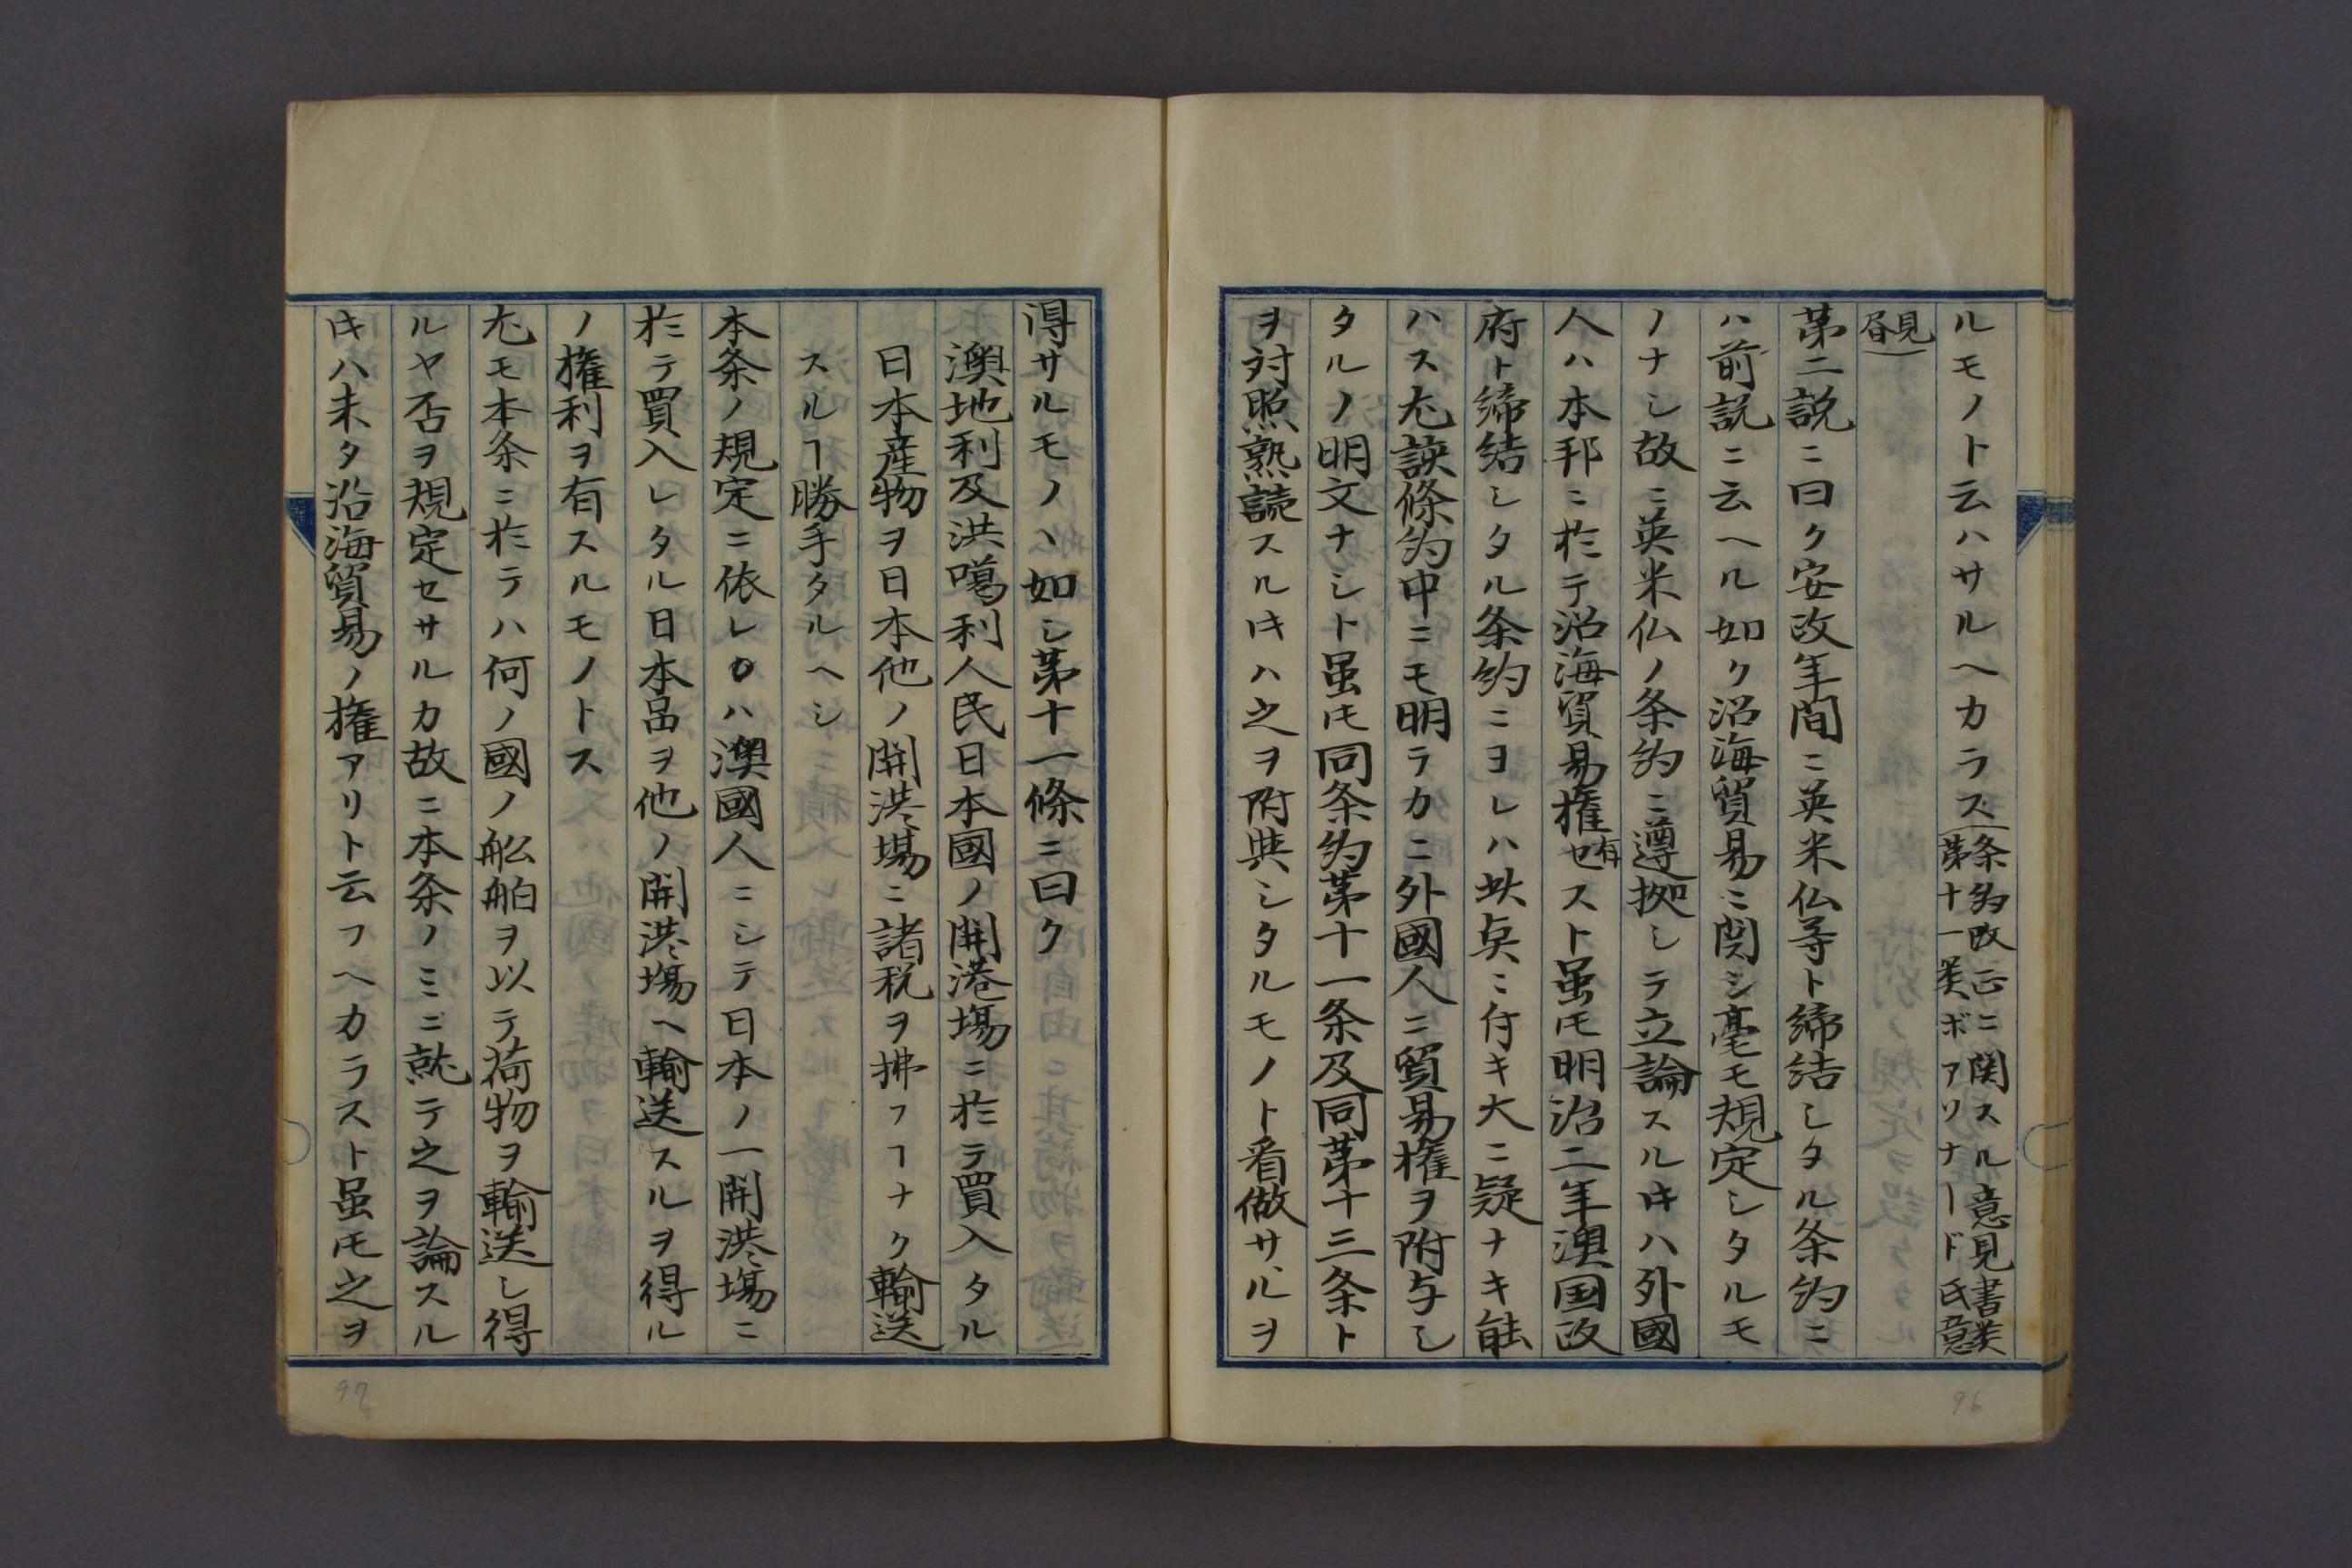 ルモノト云ハサルヘカラス(条約改正ニ関スル意見書類
第十一養ボアソナード氏意
見書)
第二説ニ曰ク安政年間ニ英米仏等ト締結シタル条約ニ
ハ前説ニ云ヘル如ク沿海貿易ニ関シ毫モ規定シタルモ
ノナシ故ニ英米仏ノ条約ニ遵拠シテ立論スルㇳキハ外國
人ハ本邦ニ於テ沿海貿易権ヲ有セスト虽𪜈明治二年澳国政
府ト締結シタル条約ニヨレハ此点ニ付キ大ニ疑ナキ能
ハス尤該條約中ニモ明ラカニ外國人ニ貿易権ヲ附与シ
タルノ明文ナシト虽𪜈同条約第十一条及同第十三条ト
ヲ対照熟読スル𪜈ハ之ヲ附與シタルモノト看做サヽルヲ
得サルモノヽ如シ第十一條ニ曰ク
澳地利及洪噶利人民日本國ノ開港場ニ於テ買入タル
日本産物ヲ日本他ノ開港場ニ諸税ヲ拂フヿナク輸送
スルヿ勝手タルヘシ
本条ノ規定ニ依レハ澳國人ニシテ日本ノ一開港場ニ
於テ買入レタル日本品ヲ他ノ開港場ヘ輸送スルヲ得ル
ノ権利ヲ有スルモノトス
尤モ本条ニ於テハ何ノ國ノ舩舶ヲ以テ荷物ヲ輸送シ得
ルヤ否ヲ規定セサルカ故ニ本条ノミニ就テ之ヲ論スル
𪜈ハ未タ沿海貿易ノ権アリト云フヘカラスト虽𪜈之ヲ
96
97